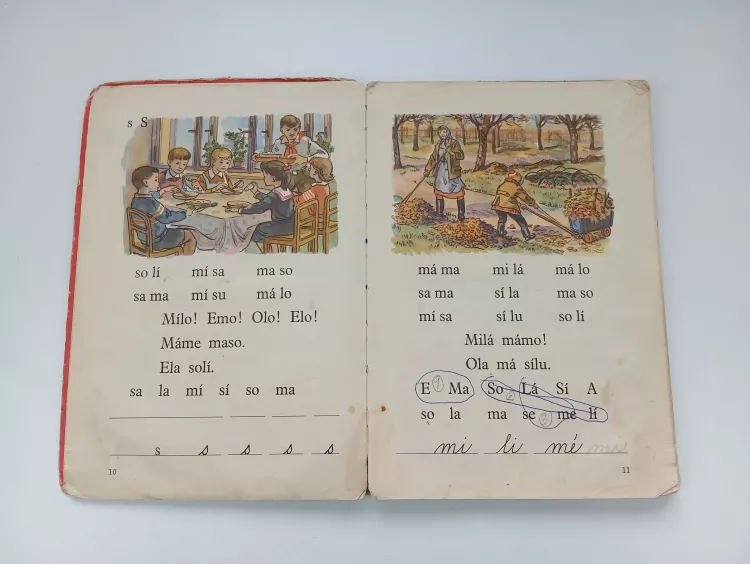 s S
so lí mí sa ma so
sa ma mí su má lo
Mílo! Emo! Olo! Elo!
Máme maso.
Ela solí.
sa la mí sí so ma
s s s s s
10
má ma mi lá má lo
sa ma sí la ma so
mí sa sí lu so lí
Milá mámo!
Ola má sílu.
E 1 Ma So 2 Lá Sí A
so la ma se 3 me lí
mi li mé mi
11